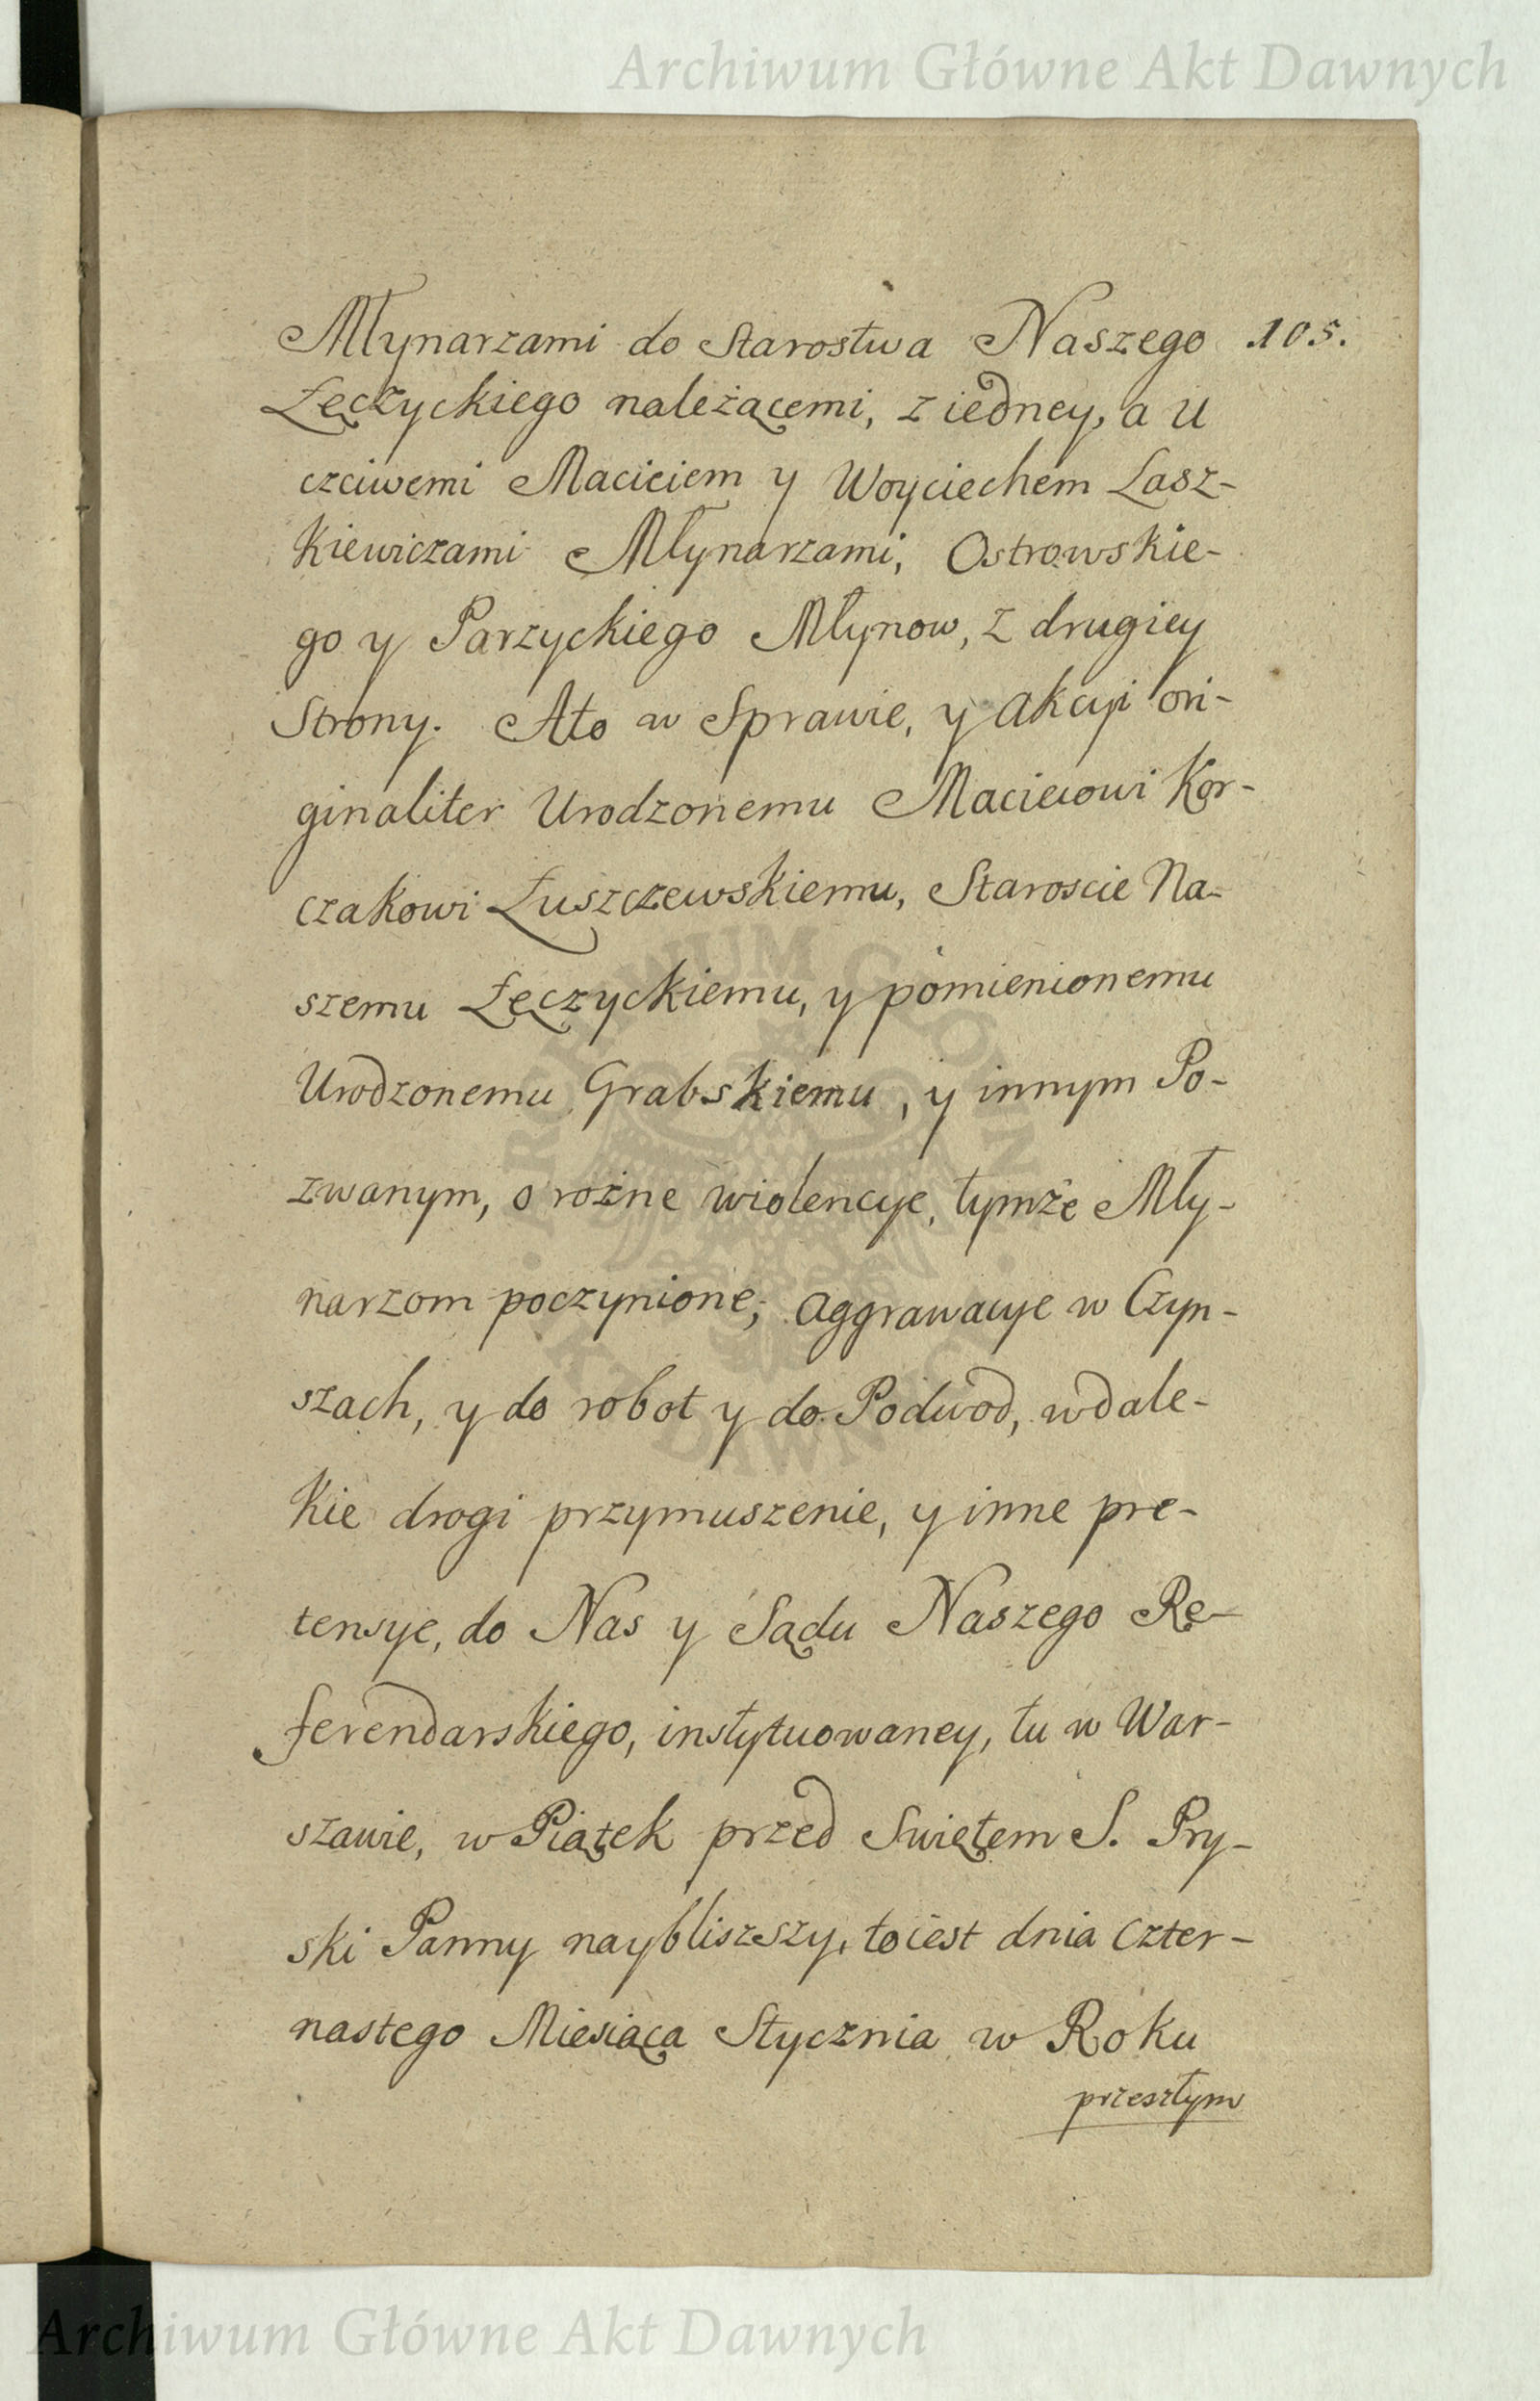 Archiwum Główne Akt Dawnych
Młynarzami do Starostwa Naszego 105.
Łęczyckiego należącemi, z iedney, a U
czciwemi Maciciem y Woyciechem Lasz-
kiewiczami Młynarzami, Ostrowskie-
go y Parzyckiego Młynow, z drugiey
Strony. Ato w Sprawie, y Akcyi ori-
ginaliter Urodzonemu Macieiowi Kor-
czakowi Łuszczewskiemu, Staroscie Na-
szemu Łęczyckiemu, y pomienionemu
Urodzonemu Grabskiemu, y innym Po-
zwanym, o rożne wiolencye, tymże Mły-
narzom poczynione, Aggrawacye w Czyn-
szach, y do robot y do Podwod, w dale-
kie drogi przymuszenie, y inne pre-
tensye, do Nas y Sądu Naszego Re-
ferendarskiego, instytuowaney, tu w War-
szawie, w Piątek przed Swiętem S. Pry-
ski Panny naybliszszy, to iest dnia czter-
nastego Miesiąca Stycznia w Roku
przeszłym
Archiwum Główne Akt Dawnych